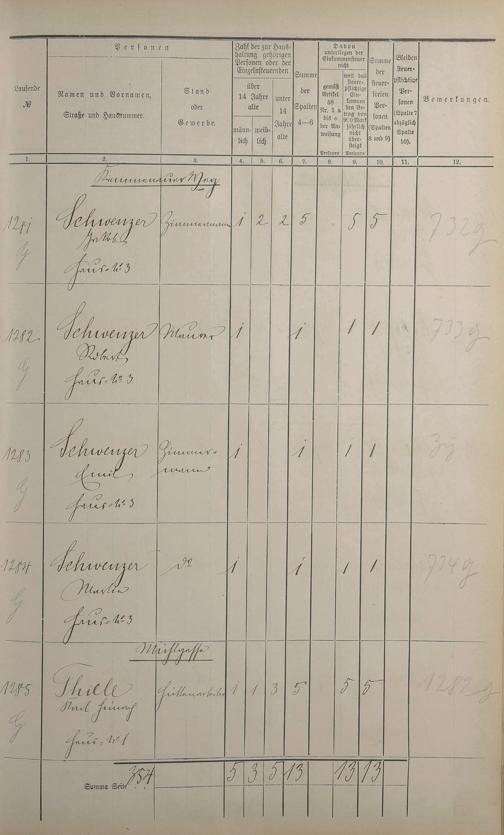 Laufende
№
Personen
Namen und Vornamen,
Straße und Hausnummer.
Stand
oder
Gewerbe.
Zahl der zur Haus-
haltung gehörigen
Personen oder der
Einzelnsteuernden
über
14 Jahre
alte
männ-
lich
weib-
lich
unter
14
Jahre
alte
Summe
der
Spalten
4—6
Davon
unterliegen der
Einkommensteuer
nicht
gemäß
Artikel
Nr. 1
bis
der An-
weisung
Personen
weil das
steuer-
pflichtige
Ein-
kommen
den Be-
trag von
900 Mark
jährlich
nicht
über-
steigt
Personen
Summe
der
steuer-
freien
Per-
sonen
(Spalten
8 und 9)
Bleiben
steuer-
pflichtige
Per-
sonen
(Spalte 7
abzüglich
Spalte
10).
Bemerkungen.
1. 2. 3. 4. 5. 6. 7. 8. 9. 10. 11. 12.
Kemmenauer Weg
1281 Schwenzer Zimmermann 1 2 2 5 5 5 732g
G
Haus-№ 3
1282 Schwenzer Maurer 1 1 1 1 733g
Robert
G Haus-№ 3
1283 Schwenzer Zimmer- 1 1 1 1
Emil mann
G Haus-№ 3
1284 Schwenzer do 1 1 1 1 734g
Martin
G Haus-№ 3
Mühlgasse
1285 Thielle Hüttenarbeiter 1 1 3 5 5 5 1282g
Karl Heinrich
G Haus-№ 1
Summa Seite 384 5 3 5 13 13 13